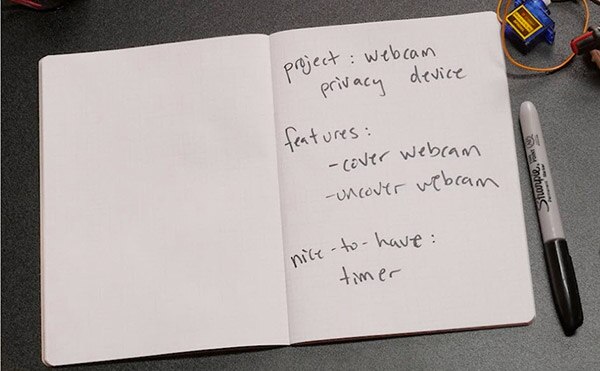 project : webcam
privacy device
features :
- cover webcam
- uncover webcam
nice - to - have :
timer
Sharpie